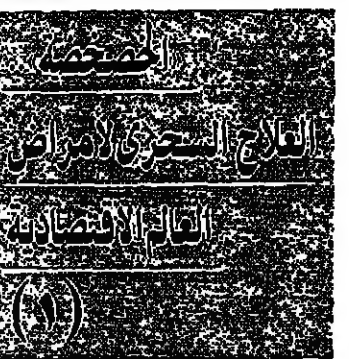 الخصخصة
العلاج السحرى لأمراض
العالم الاقتصادية
(١)